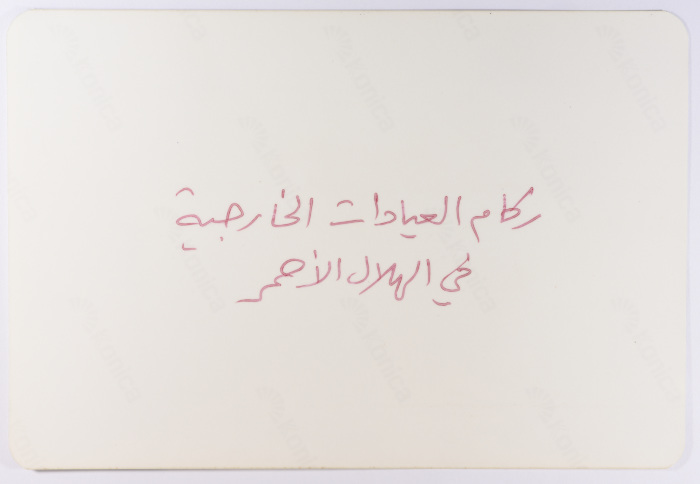 ركام العيادات الخارجية
في الهلال الأحمر